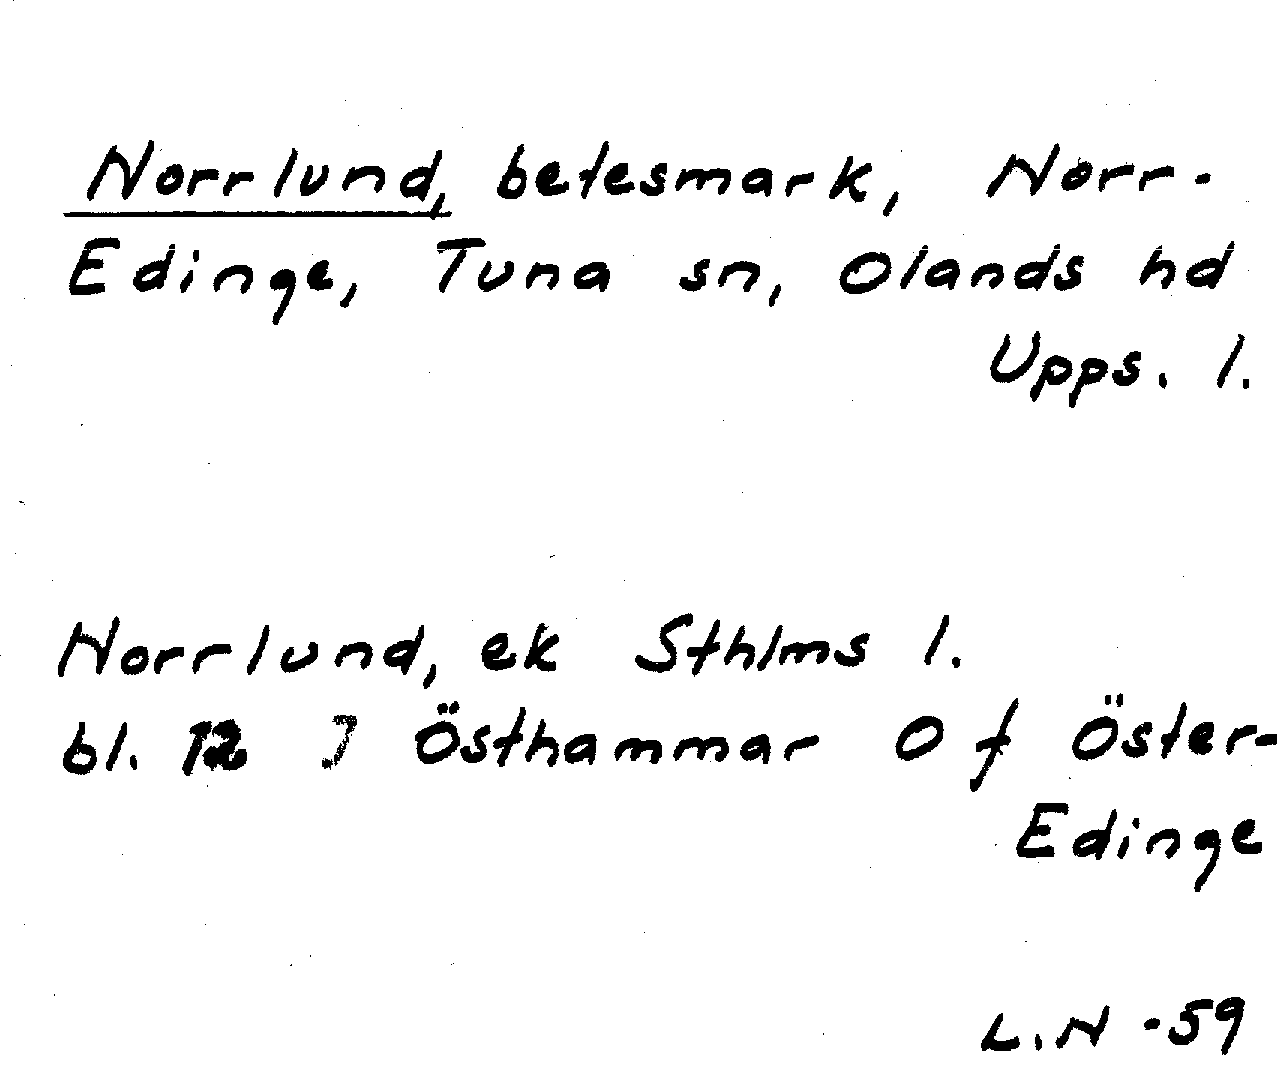 Norrlund, betesmark, Norr-
Edinge, Tuna sn, Olands hd
Upps. l.
Norrlund, ek Sthlms l.
bl. 12 J Östhammar O f Öster-
Edinge
L.N -59